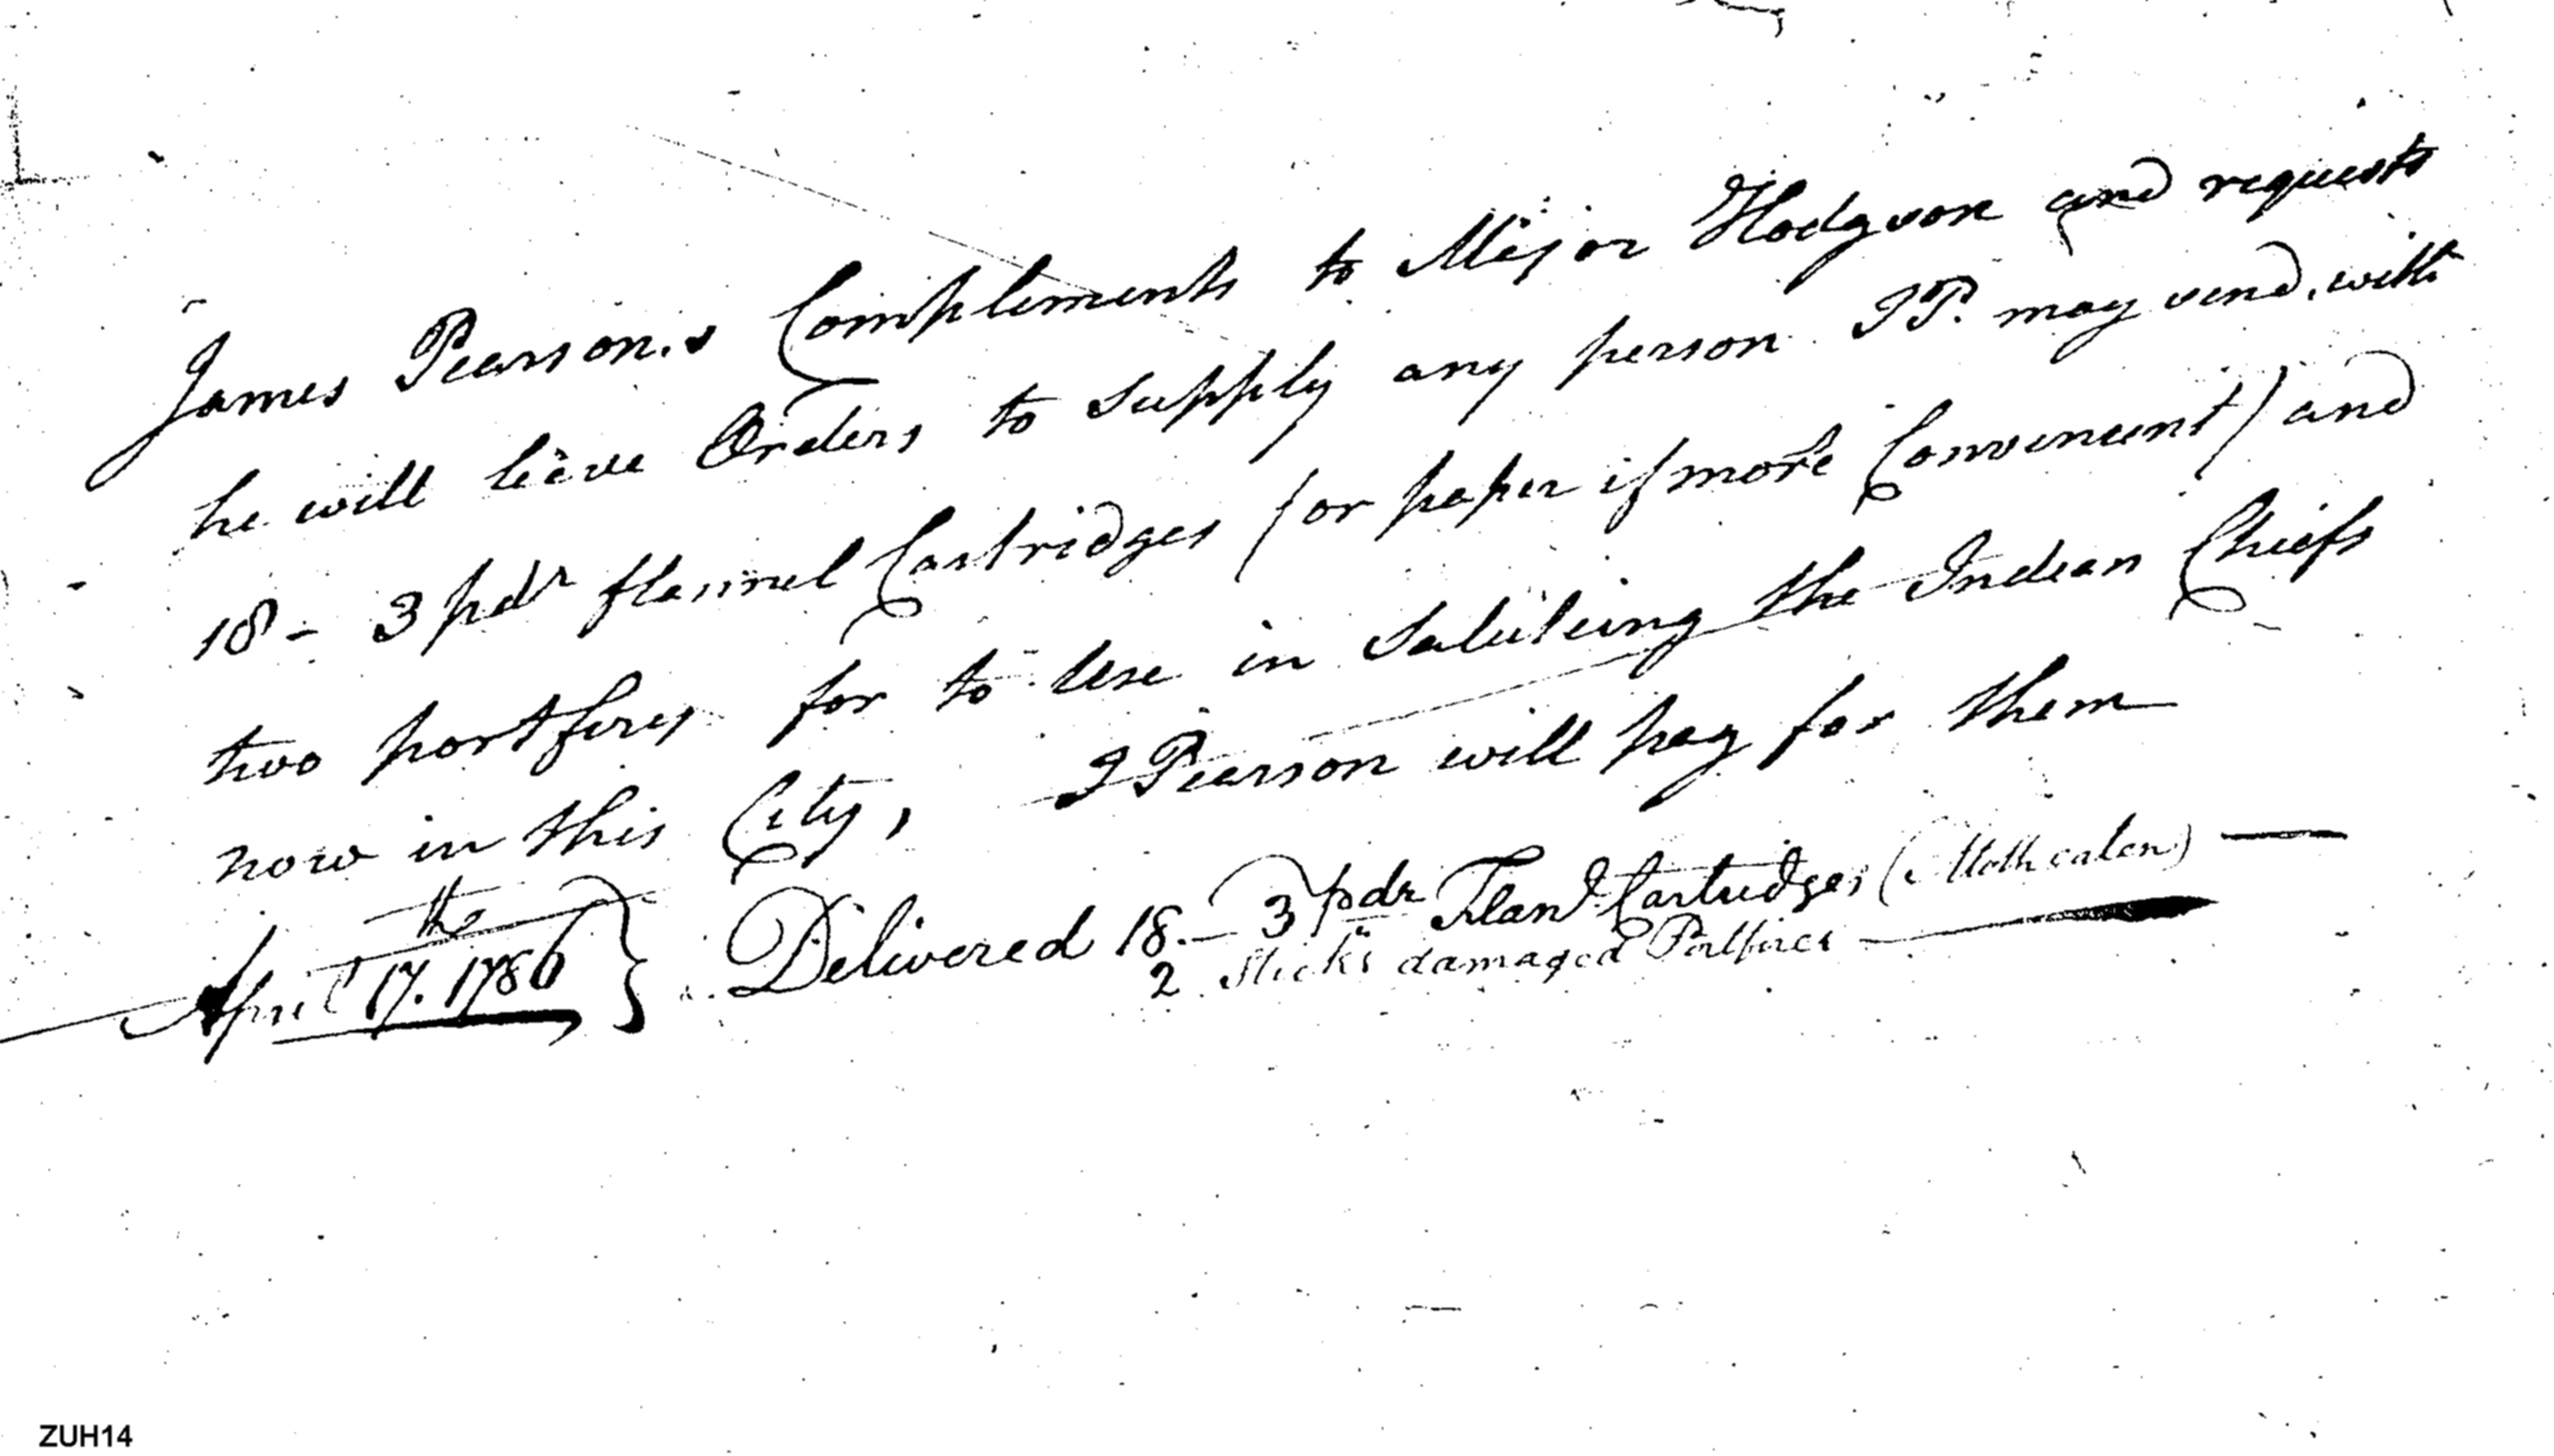 James Pearson,s Complements to Mejor Hodgson and requests
he will leeve Orders to supply any person JP. may send, with
18 - 3 pdr flannel Cartridges (or paper if more Convenient) and
two portfires for to Use in Saluteing the Indean Chiefs
now in this City, J Pearson will pay for them
April 17.th 1786 } Delivered 18. - 3 pdr Flanl Cartridges (Moth eaten) —
2 Sticks damaged Portfires —
ZUH14